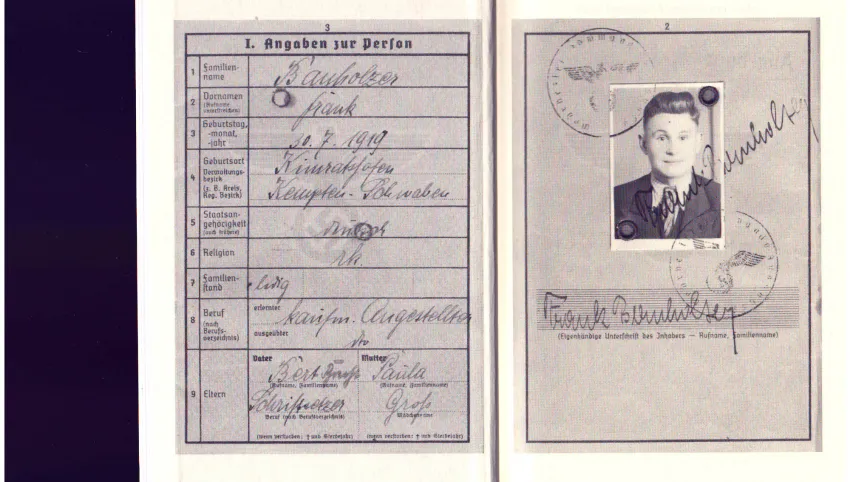 3
I. Angaben zur Person
1 Familien-
name
Banholzer
2 Vornamen
(Rufname
unterstreichen)
Frank
3 Geburtstag,
-monat,
-jahr
30. 7. 1919
4 Geburtsort
Verwaltungs-
bezirk
(z. B. Kreis,
Reg. Bezirk)
Kimratshofen
Kempten - Schwaben
5 Staatsan-
gehörigkeit
(auch frühere)
6 Religion
rk.
7 Familien-
stand
ledig
8 Beruf
(nach
Berufs-
verzeichnis)
erlernter
kaufm. Angestellter
ausgeübter
dto
9 Eltern
Vater
Mutter
Bert
Paula
(Rufname, Familienname)
(Rufname, Familienname)
Schriftsetzer
Groß
Beruf (nach Berufsverzeichnis)
Mädchenname
(wenn verstorben: † und Sterbejahr)
(wenn verstorben: † und Sterbejahr)
2
Frank Banholzer
Frank Banholzer
(Eigenhändige Unterschrift des Inhabers — Rufname, Familienname)